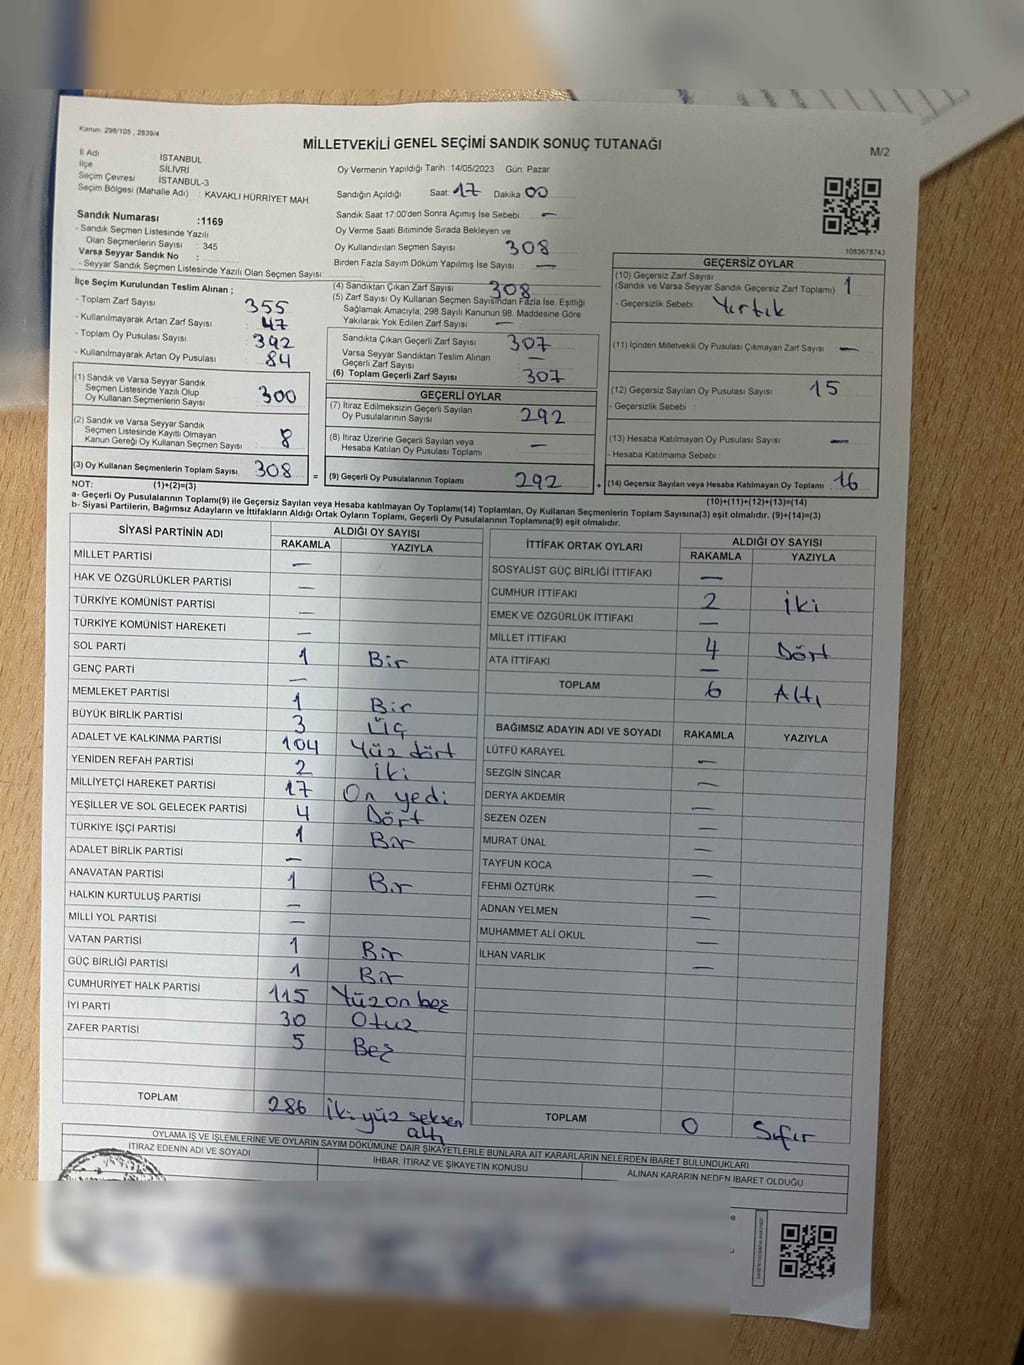 Kanun: 298/105 , 2839/4
MİLLETVEKİLİ GENEL SEÇİMİ SANDIK SONUÇ TUTANAĞI
M/2
İl Adı : İSTANBUL
İlçe : SİLİVRİ
Seçim Çevresi : İSTANBUL-3
Seçim Bölgesi (Mahalle Adı) : KAVAKLI HÜRRİYET MAH.
Sandık Numarası : 1169
- Sandık Seçmen Listesinde Yazılı
Olan Seçmenlerin Sayısı : 345
Varsa Seyyar Sandık No :
- Seyyar Sandık Seçmen Listesinde Yazılı Olan Seçmen Sayısı:
Oy Vermenin Yapıldığı Tarih : 14/05/2023 Gün: Pazar
Sandığın Açıldığı Saat: 17 Dakika 00
Sandık Saat 17:00'den Sonra Açımış İse Sebebi : —
Oy Verme Saati Bitiminde Sırada Bekleyen ve
Oy Kullandırılan Seçmen Sayısı : 308
Birden Fazla Sayım Döküm Yapılmış İse Sayısı : —
1083678743
İlçe Seçim Kurulundan Teslim Alınan ;
- Toplam Zarf Sayısı : 355
- Kullanılmayarak Artan Zarf Sayısı : 47
- Toplam Oy Pusulası Sayısı : 392
- Kullanılmayarak Artan Oy Pusulası : 84
(1) Sandık ve Varsa Seyyar Sandık
Seçmen Listesinde Yazılı Olup
Oy Kullanan Seçmenlerin Sayısı 300
(2) Sandık ve Varsa Seyyar Sandık
Seçmen Listesinde Kayıtlı Olmayan
Kanun Gereği Oy Kullanan Seçmen Sayısı 8
(3) Oy Kullanan Seçmenlerin Toplam Sayısı 308 =
(4) Sandıktan Çıkan Zarf Sayısı 308
(5) Zarf Sayısı Oy Kullanan Seçmen Sayısından Fazla İse, Eşitliği
Sağlamak Amacıyla, 298 Sayılı Kanunun 98. Maddesine Göre
Yakılarak Yok Edilen Zarf Sayısı : —
Sandıkta Çıkan Geçerli Zarf Sayısı : 307
Varsa Seyyar Sandıktan Teslim Alınan
Geçerli Zarf Sayısı : —
(6) Toplam Geçerli Zarf Sayısı : 307
GEÇERLİ OYLAR
(7) İtiraz Edilmeksizin Geçerli Sayılan
Oy Pusulalarının Sayısı : 292
(8) İtiraz Üzerine Geçerli Sayılan veya
Hesaba Katılan Oy Pusulası Toplamı : —
(9) Geçerli Oy Pusulalarının Toplamı 292 +
GEÇERSİZ OYLAR
(10) Geçersiz Zarf Sayısı
(Sandık ve Varsa Seyyar Sandık Geçersiz Zarf Toplamı) 1
- Geçersizlik Sebebi : Yırtık
(11) İçinden Milletvekili Oy Pusulası Çıkmayan Zarf Sayısı : —
(12) Geçersiz Sayılan Oy Pusulası Sayısı : 15
- Geçersizlik Sebebi :
(13) Hesaba Katılmayan Oy Pusulası Sayısı : —
- Hesaba Katılmama Sebebi :
(14) Geçersiz Sayılan veya Hesaba Katılmayan Oy Toplamı 16
NOT: (1)+(2)=(3)
(10)+(11)+(12)+(13)=(14)
a- Geçerli Oy Pusulalarının Toplamı(9) ile Geçersiz Sayılan veya Hesaba katılmayan Oy Toplamı(14) Toplamları, Oy Kullanan Seçmenlerin Toplam Sayısına(3) eşit olmalıdır. (9)+(14)=(3)
b- Siyasi Partilerin, Bağımsız Adayların ve İttifakların Aldığı Ortak Oyların Toplamı, Geçerli Oy Pusulalarının Toplamına(9) eşit olmalıdır.
SİYASİ PARTİNİN ADI ALDIĞI OY SAYISI
RAKAMLA YAZIYLA
MİLLET PARTİSİ —
HAK VE ÖZGÜRLÜKLER PARTİSİ —
TÜRKİYE KOMÜNİST PARTİSİ —
TÜRKİYE KOMÜNİST HAREKETİ —
SOL PARTİ 1 Bir
GENÇ PARTİ —
MEMLEKET PARTİSİ 1 Bir
BÜYÜK BİRLİK PARTİSİ 3 Üç
ADALET VE KALKINMA PARTİSİ 104 Yüz dört
YENİDEN REFAH PARTİSİ 2 İki
MİLLİYETÇİ HAREKET PARTİSİ 17 On yedi
YEŞİLLER VE SOL GELECEK PARTİSİ 4 Dört
TÜRKİYE İŞÇİ PARTİSİ 1 Bir
ADALET BİRLİK PARTİSİ —
ANAVATAN PARTİSİ 1 Bir
HALKIN KURTULUŞ PARTİSİ —
MİLLİ YOL PARTİSİ —
VATAN PARTİSİ 1 Bir
GÜÇ BİRLİĞİ PARTİSİ 1 Bir
CUMHURİYET HALK PARTİSİ 115 Yüz on beş
İYİ PARTİ 30 Otuz
ZAFER PARTİSİ 5 Beş
TOPLAM 286 İki yüz seksen
altı
İTTİFAK ORTAK OYLARI ALDIĞI OY SAYISI
RAKAMLA YAZIYLA
SOSYALİST GÜÇ BİRLİĞİ İTTİFAKI —
CUMHUR İTTİFAKI 2 İki
EMEK VE ÖZGÜRLÜK İTTİFAKI —
MİLLET İTTİFAKI 4 Dört
ATA İTTİFAKI —
TOPLAM 6 Altı
BAĞIMSIZ ADAYIN ADI VE SOYADI RAKAMLA YAZIYLA
LÜTFÜ KARAYEL —
SEZGİN SİNCAR —
DERYA AKDEMİR —
SEZEN ÖZEN —
MURAT ÜNAL —
TAYFUN KOCA —
FEHMİ ÖZTÜRK —
ADNAN YELMEN —
MUHAMMET ALİ OKUL —
İLHAN VARLIK —
TOPLAM 0 Sıfır
OYLAMA İŞ VE İŞLEMLERİNE VE OYLARIN SAYIM DÖKÜMÜNE DAİR ŞİKAYETLERLE BUNLARA AİT KARARLARIN NELERDEN İBARET BULUNDUKLARI
İTİRAZ EDENİN ADI VE SOYADI İHBAR, İTİRAZ VE ŞİKAYETİN KONUSU ALINAN KARARIN NEDEN İBARET OLDUĞU